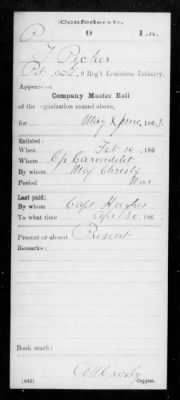 Confederate.
P 9 La.
T Picker
Pvt, Co. , 9 Reg't Louisiana Infantry.
Appears on
Company Muster Roll
of the organization named above,
for May & June, 1863.
Enlisted:
When Feb 10, 186
Where Cp Carondelet
By whom Maj Christy
Period War
Last paid:
By whom Capt Hughes
To what time Apr 30, 186
Present or absent Present
Remarks:
Book mark:
(642) Copyist.